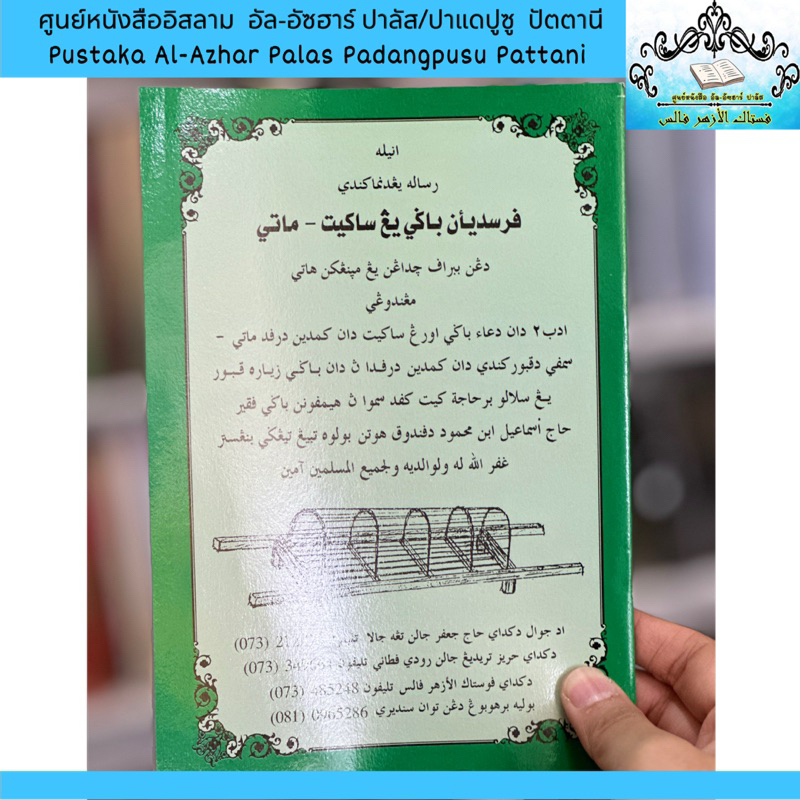 ศูนย์หนังสืออิสลาม อัล-อัซฮาร์ ปาลัส/ปาแดปูซู ปัตตานี
Pustaka Al-Azhar Palas Padangpusu Pattani
ศูนย์หนังสือ อัล-อัซฮาร์ ปาลัส
فستاك الأزهر فالس
انيله
رساله يڠدنماكندي
فرسديأن باݢي يڠ ساكيت - ماتي
دڠن ببراف چداڠن يڠ مپنڠكن هاتي
مڠندوڠي
ادب٢ دان دعاء باݢي اورڠ ساكيت دان كمدين درفد ماتي -
سمفي دقبوركندي دان كمدين درفدا ڽ دان باݢي زياره قبور
يڠ سلالو برحاجة كيت كفد سموا ڽ هيمفونن باݢي فقير
حاج أسماعيل ابن محمود دفندوق هوتن بولوه تبيڠ تيڠݢي بنڠستر
غفر الله له ولوالديه ولجميع المسلمين آمين
اد جوال دكداي حاج جعفر جالن تڠه جالا (073)
دكداي حريز تريديڠ جالن رودي فطاني تليفون (073)
دكداي فوستاك الأزهر فالس تليفون 485248 (073)
بوليه برهوبوڠ دڠن توان سنديري 0965286 (081)